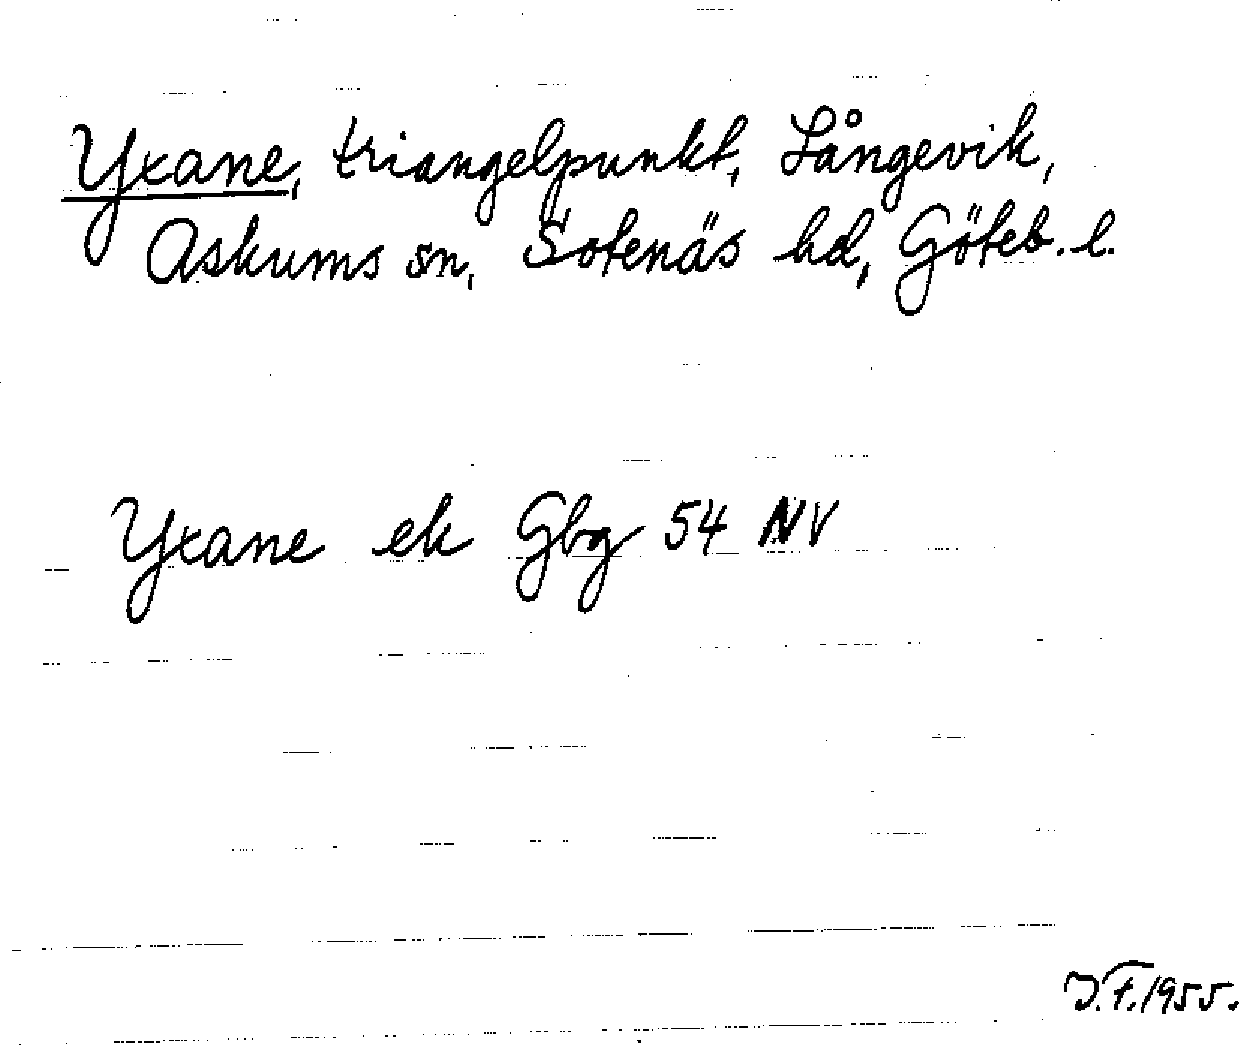 Yxane, triangelpunkt, Långevik,
Askums sn, Sotenäs hd, Göteb. l.
Yxane ek Gbg 54 NV
J.F. 1955.